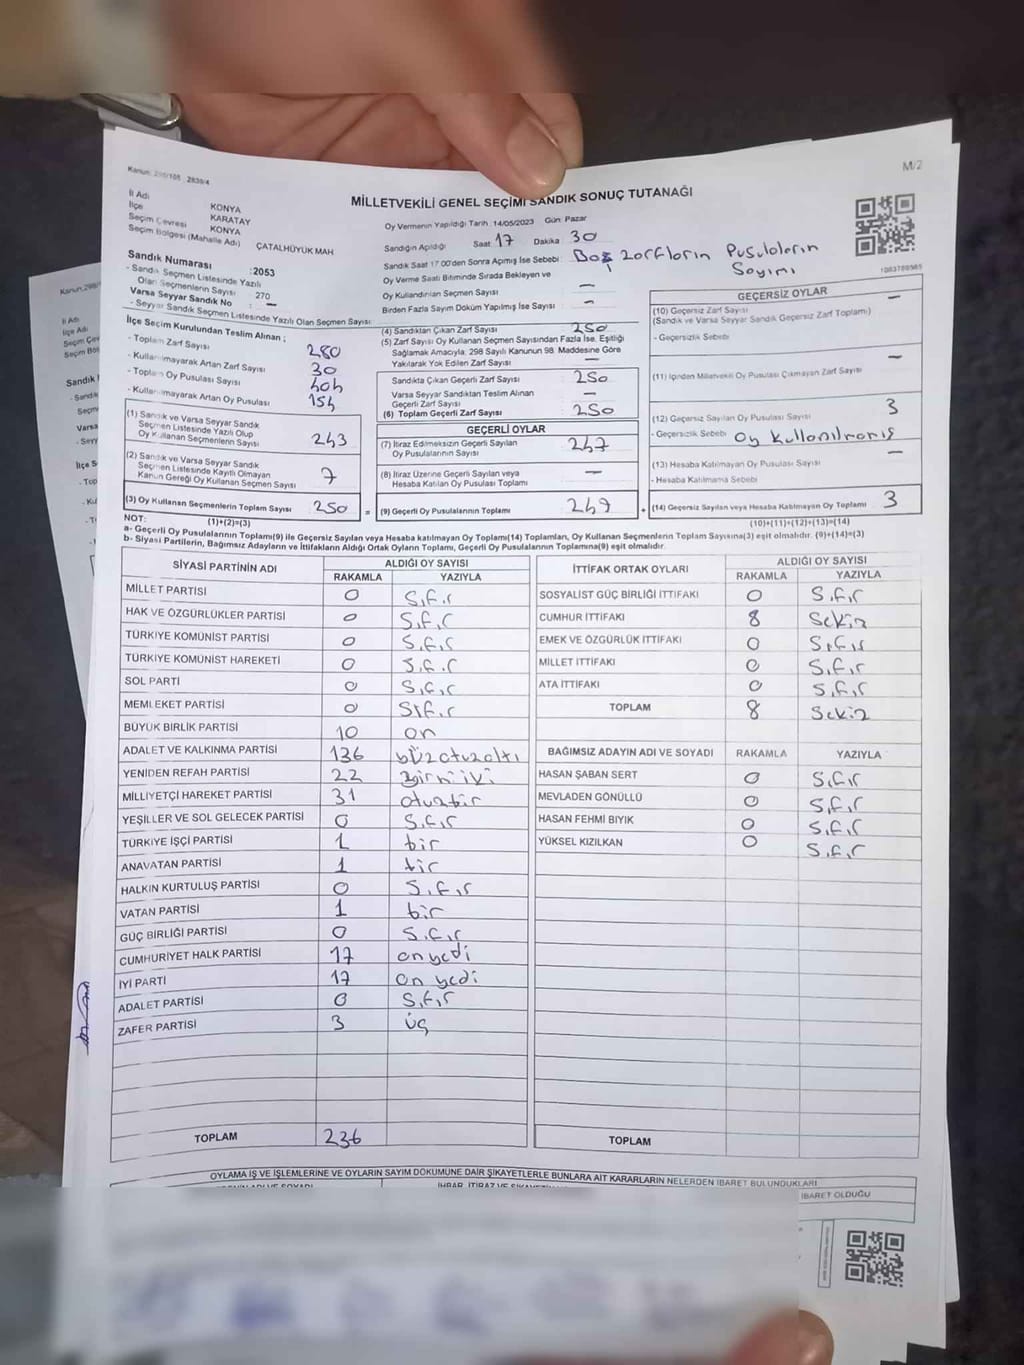 Kanun: 298/105 2839/4
M/2
MİLLETVEKİLİ GENEL SEÇİMİ SANDIK SONUÇ TUTANAĞI
İl Adı KONYA
İlçe KARATAY
Seçim Çevresi KONYA
Seçim Bölgesi (Mahalle Adı) ÇATALHÜYÜK MAH
Sandık Numarası :2053
- Sandık Seçmen Listesinde Yazılı
Olan Seçmenlerin Sayısı 270
Varsa Seyyar Sandık No : —
- Seyyar Sandık Seçmen Listesinde Yazılı Olan Seçmen Sayısı:
Oy Vermenin Yapıldığı Tarih :14/05/2023 Gün: Pazar
Sandığın Açıldığı Saat 17 Dakika 30
Sandık Saat 17:00'den Sonra Açılmış İse Sebebi: Boş zarfların Pusulaların
Sayımı
Oy Verme Saati Bitiminde Sırada Bekleyen ve
Oy Kullandırılan Seçmen Sayısı —
Birden Fazla Sayım Döküm Yapılmış İse Sayısı —
İlçe Seçim Kurulundan Teslim Alınan ;
- Toplam Zarf Sayısı 280
- Kullanılmayarak Artan Zarf Sayısı 30
- Toplam Oy Pusulası Sayısı 404
- Kullanılmayarak Artan Oy Pusulası 154
(1) Sandık ve Varsa Seyyar Sandık
Seçmen Listesinde Yazılı Olup
Oy Kullanan Seçmenlerin Sayısı 243
(2) Sandık ve Varsa Seyyar Sandık
Seçmen Listesinde Kayıtlı Olmayan
Kanun Gereği Oy Kullanan Seçmen Sayısı 7
(3) Oy Kullanan Seçmenlerin Toplam Sayısı 250
(1)+(2)=(3)
(4) Sandıktan Çıkan Zarf Sayısı 250
(5) Zarf Sayısı Oy Kullanan Seçmen Sayısından Fazla İse, Eşitliği
Sağlamak Amacıyla, 298 Sayılı Kanunun 98. Maddesine Göre
Yakılarak Yok Edilen Zarf Sayısı —
Sandıkta Çıkan Geçerli Zarf Sayısı 250
Varsa Seyyar Sandıktan Teslim Alınan
Geçerli Zarf Sayısı —
(6) Toplam Geçerli Zarf Sayısı 250
GEÇERLİ OYLAR
(7) İtiraz Edilmeksizin Geçerli Sayılan
Oy Pusulalarının Sayısı 247
(8) İtiraz Üzerine Geçerli Sayılan veya
Hesaba Katılan Oy Pusulası Toplamı —
= (9) Geçerli Oy Pusulalarının Toplamı 247
GEÇERSİZ OYLAR
(10) Geçersiz Zarf Sayısı —
(Sandık ve Varsa Seyyar Sandık Geçersiz Zarf Toplamı)
- Geçersizlik Sebebi
(11) İçinden Milletvekili Oy Pusulası Çıkmayan Zarf Sayısı —
(12) Geçersiz Sayılan Oy Pusulası Sayısı 3
- Geçersizlik Sebebi Oy kullanılmamış
(13) Hesaba Katılmayan Oy Pusulası Sayısı —
- Hesaba Katılmama Sebebi
+ (14) Geçersiz Sayılan veya Hesaba Katılmayan Oy Toplamı 3
(10)+(11)+(12)+(13)=(14)
NOT:
a- Geçerli Oy Pusulalarının Toplamı(9) ile Geçersiz Sayılan veya Hesaba katılmayan Oy Toplamı(14) Toplamları, Oy Kullanan Seçmenlerin Toplam Sayısına(3) eşit olmalıdır. (9)+(14)=(3)
b- Siyasi Partilerin, Bağımsız Adayların ve İttifakların Aldığı Ortak Oyların Toplamı, Geçerli Oy Pusulalarının Toplamına(9) eşit olmalıdır.
SİYASİ PARTİNİN ADI ALDIĞI OY SAYISI
RAKAMLA YAZIYLA
MİLLET PARTİSİ 0 Sıfır
HAK VE ÖZGÜRLÜKLER PARTİSİ 0 Sıfır
TÜRKİYE KOMÜNİST PARTİSİ 0 Sıfır
TÜRKİYE KOMÜNİST HAREKETİ 0 Sıfır
SOL PARTİ 0 Sıfır
MEMLEKET PARTİSİ 0 Sıfır
BÜYÜK BİRLİK PARTİSİ 10 on
ADALET VE KALKINMA PARTİSİ 136 yüzotuzaltı
YENİDEN REFAH PARTİSİ 22
MİLLİYETÇİ HAREKET PARTİSİ 31 otuzbir
YEŞİLLER VE SOL GELECEK PARTİSİ 0 Sıfır
TÜRKİYE İŞÇİ PARTİSİ 1 bir
ANAVATAN PARTİSİ 1 bir
HALKIN KURTULUŞ PARTİSİ 0 Sıfır
VATAN PARTİSİ 1 bir
GÜÇ BİRLİĞİ PARTİSİ 0 Sıfır
CUMHURİYET HALK PARTİSİ 17 onyedi
İYİ PARTİ 17 on yedi
ADALET PARTİSİ 0 Sıfır
ZAFER PARTİSİ 3 üç
TOPLAM 236
İTTİFAK ORTAK OYLARI ALDIĞI OY SAYISI
RAKAMLA YAZIYLA
SOSYALİST GÜÇ BİRLİĞİ İTTİFAKI 0 Sıfır
CUMHUR İTTİFAKI 8 Sekiz
EMEK VE ÖZGÜRLÜK İTTİFAKI 0 Sıfır
MİLLET İTTİFAKI 0 Sıfır
ATA İTTİFAKI 0 Sıfır
TOPLAM 8 Sekiz
BAĞIMSIZ ADAYIN ADI VE SOYADI RAKAMLA YAZIYLA
HASAN ŞABAN SERT 0 Sıfır
MEVLADEN GÖNÜLLÜ 0 Sıfır
HASAN FEHMİ BIYIK 0 Sıfır
YÜKSEL KIZILKAN 0 Sıfır
TOPLAM
OYLAMA İŞ VE İŞLEMLERİNE VE OYLARIN SAYIM DÖKÜMÜNE DAİR ŞİKAYETLERLE BUNLARA AİT KARARLARIN NELERDEN İBARET BULUNDUKLARI
İBARET OLDUĞU